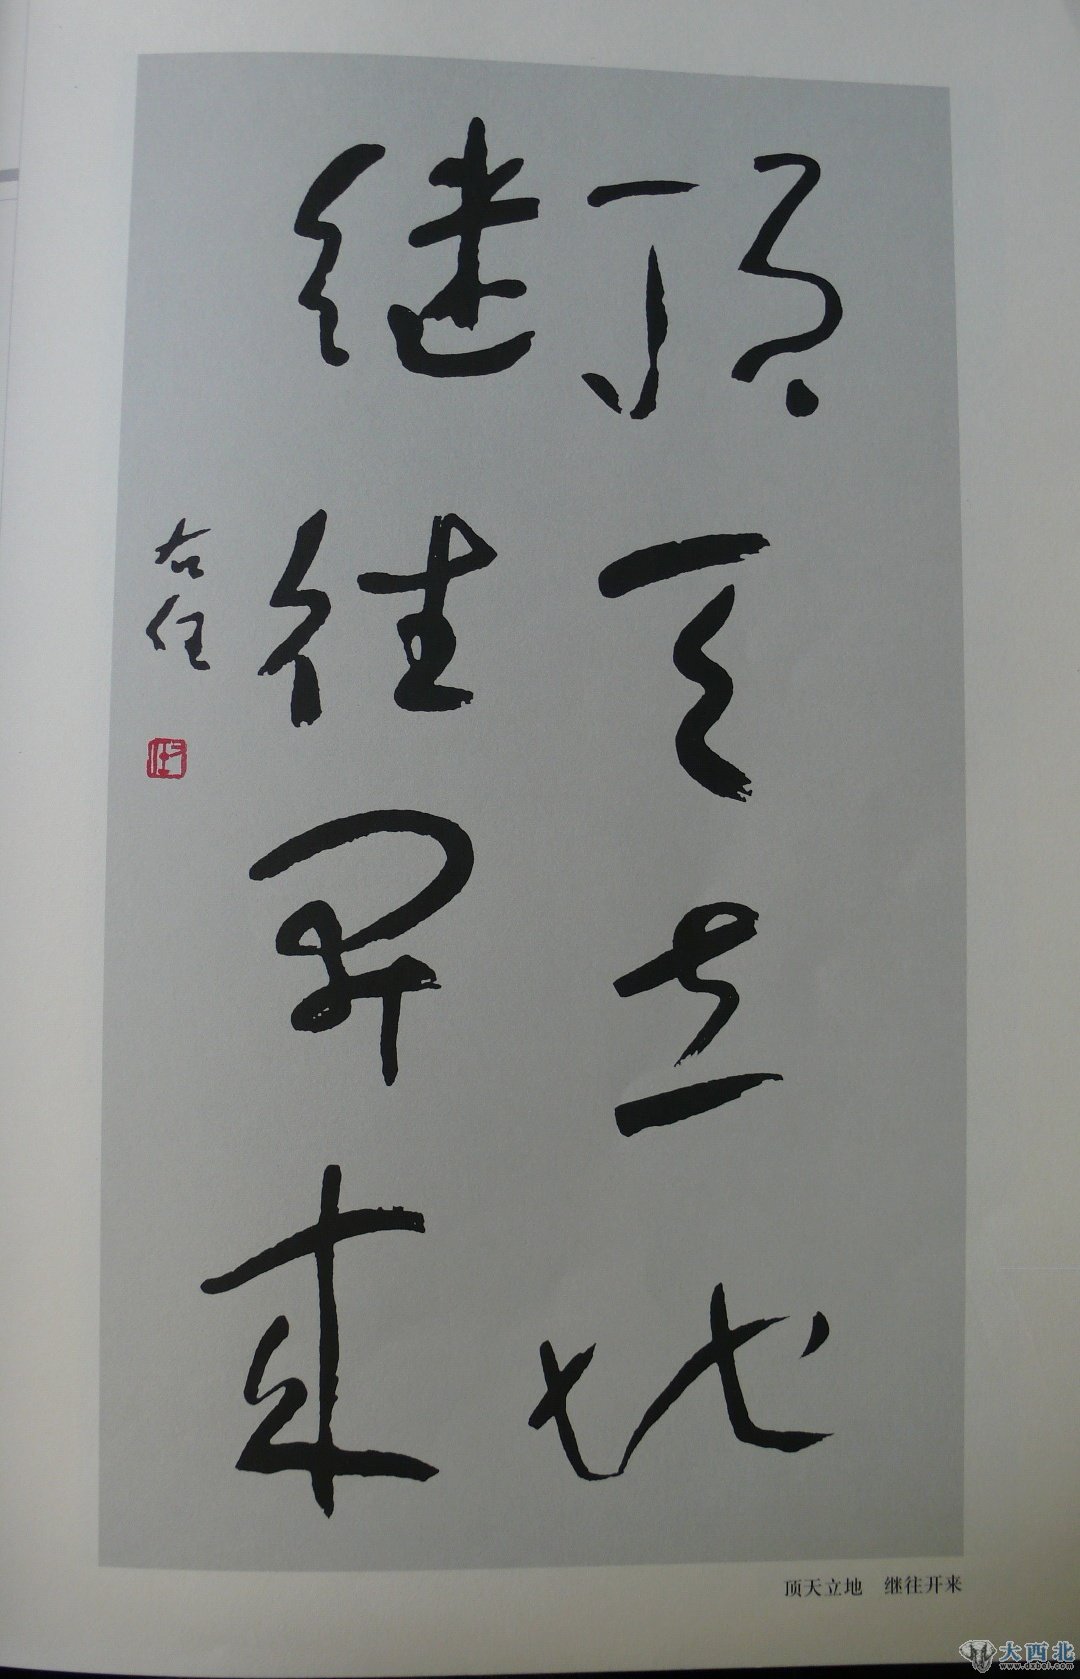 顶天立地
继往开来
右任
顶天立地 继往开来
大西北
www.dxbei.com